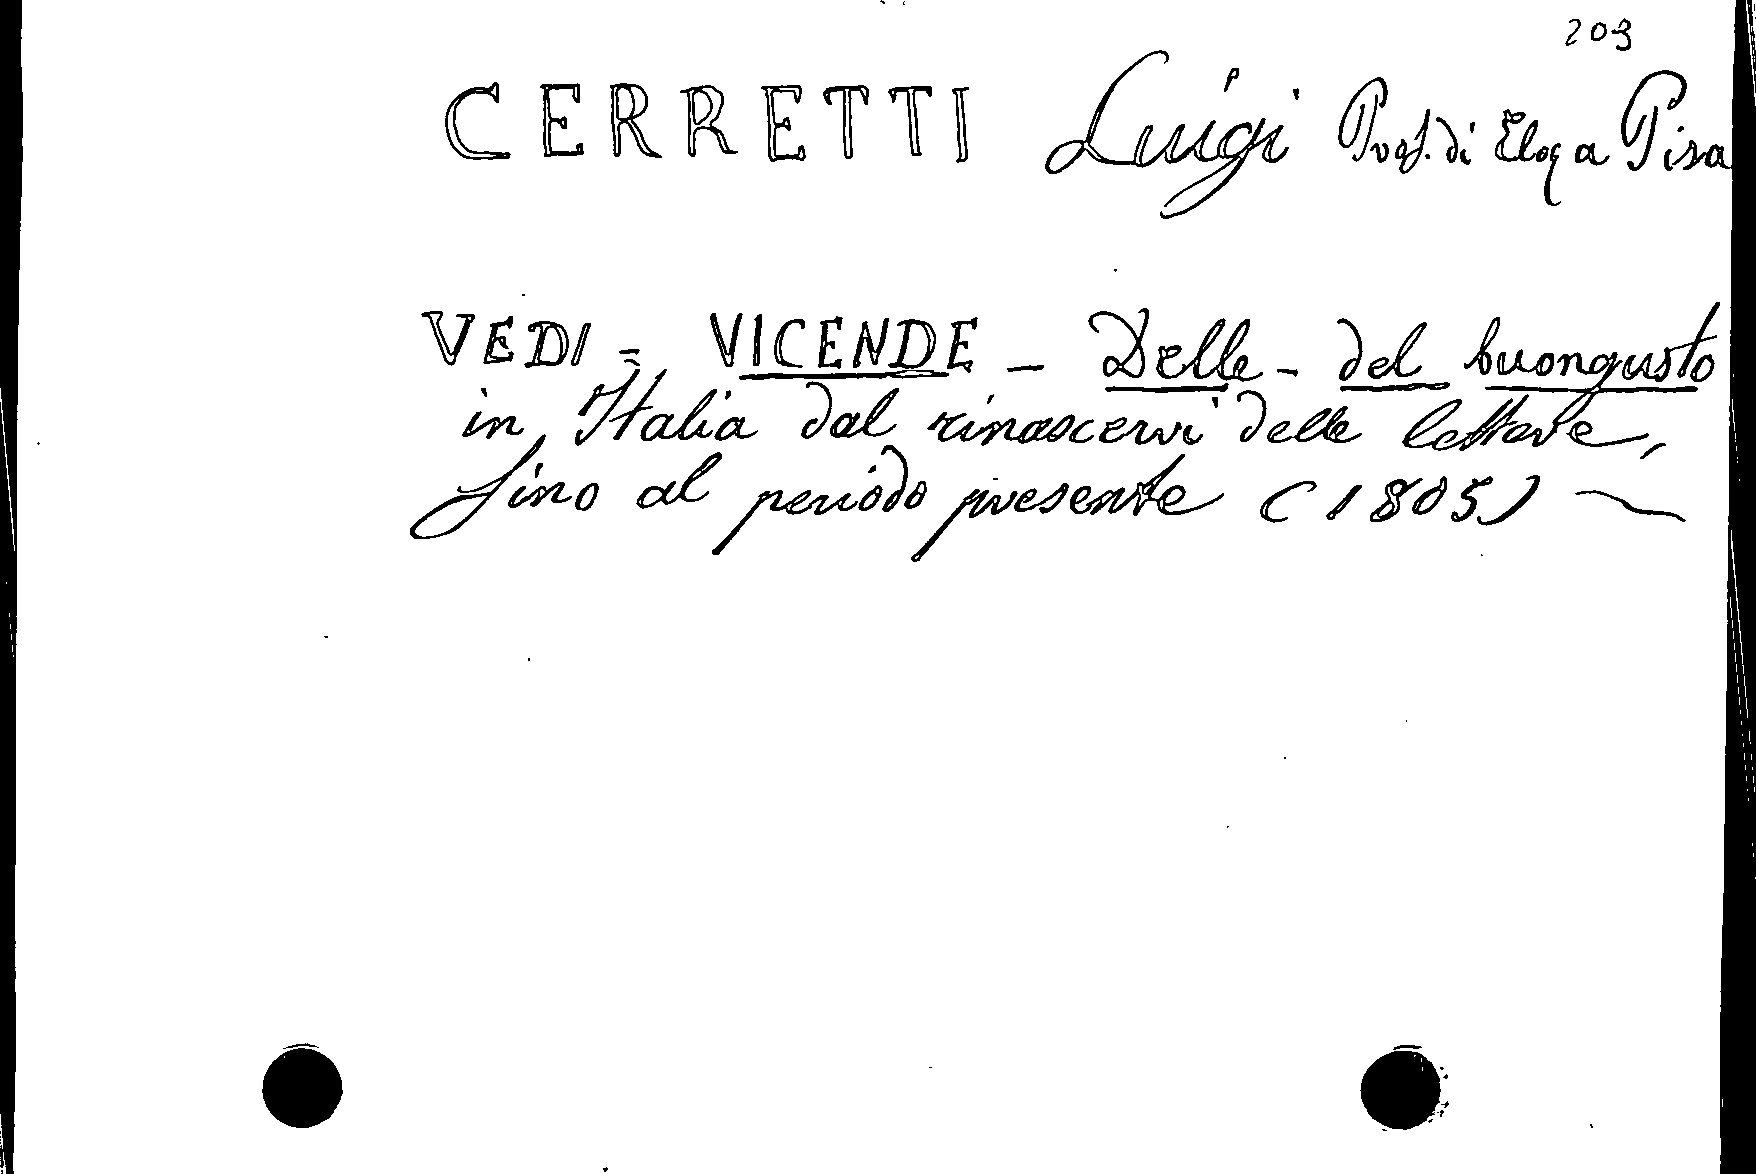 203
CERRETTI Luigi Prof. di Eloq a Pisa
VEDI = VICENDE - Delle - del buongusto
in Italia dal rinascervi delle lettere,
fino al periodo presente (1805)